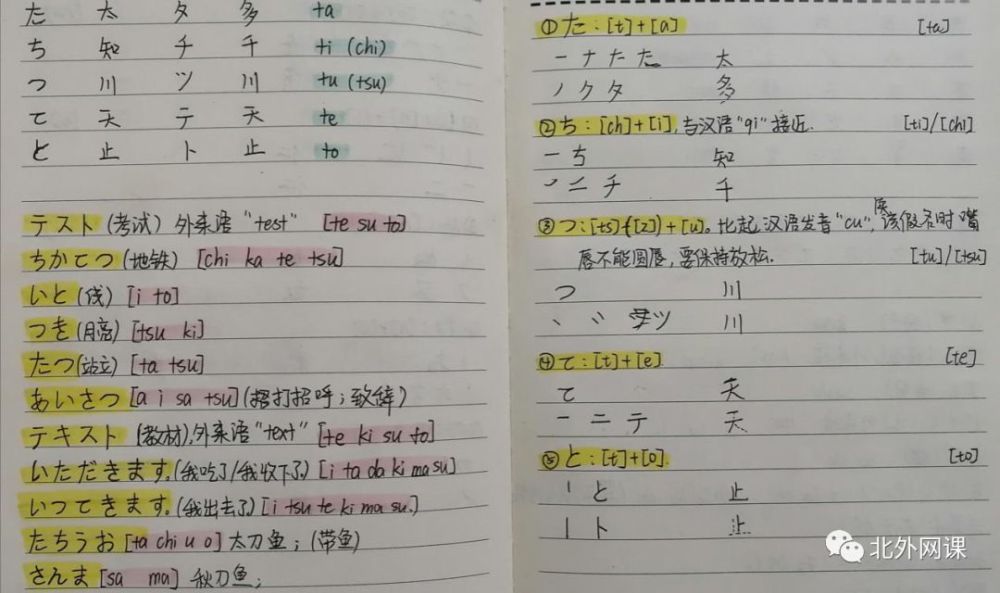 た 太 タ 多 ta
ち 知 チ 千 ti (chi)
つ 川 ツ 川 tu (tsu)
て 天 テ 天 te
と 止 ト 止 to
テスト (考试) 外来语 "test" [te su to]
ちかてつ (地铁) [chi ka te tsu]
いと (线) [i to]
つき (月亮) [tsu ki]
たつ (站立) [ta tsu]
あいさつ [a i sa tsu] (打招呼；致辞)
テキスト (教材), 外来语 "text" [te ki su to]
いただきます. (我吃了/我收下了) [i ta da ki ma su]
いつてきます. (我出去了) [i tsu te ki ma su.]
たちうお [ta chi u o] 太刀鱼；(带鱼)
さんま [sa ma] 秋刀鱼；
① た：[t]+[a] [ta]
一 ナ た た 太
ノ ク タ 多
② ち：[ch]+[i], 与汉语"qi"接近. [ti]/[chi]
一 ち 知
ノ 二 チ 千
③ つ：[ts]([z])+[u]。比起汉语发音"cu", 发该假名时嘴
唇不能圆唇, 要保持放松. [tu]/[tsu]
つ 川
丶 ツ 川
④ て：[t]+[e]. [te]
て 天
一 二 テ 天
⑤ と：[t]+[o]. [to]
丶 と 止
丨 ト 止
北外网课